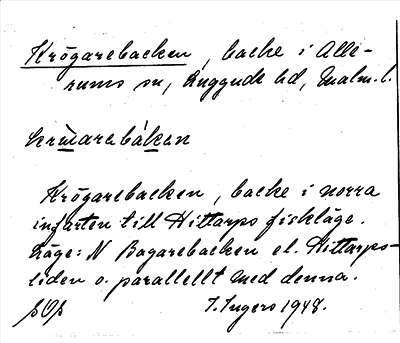 Krögarebacken, backe i Alle-
rums sn, Luggude hd, Malm. l.
Krögarebacken, backe i norra
infarten till Hittarps fiskläge.
Läge: N Bagarebacken el. Hittarps-
liden o. parallellt med denna.
I. Ingers 1948.